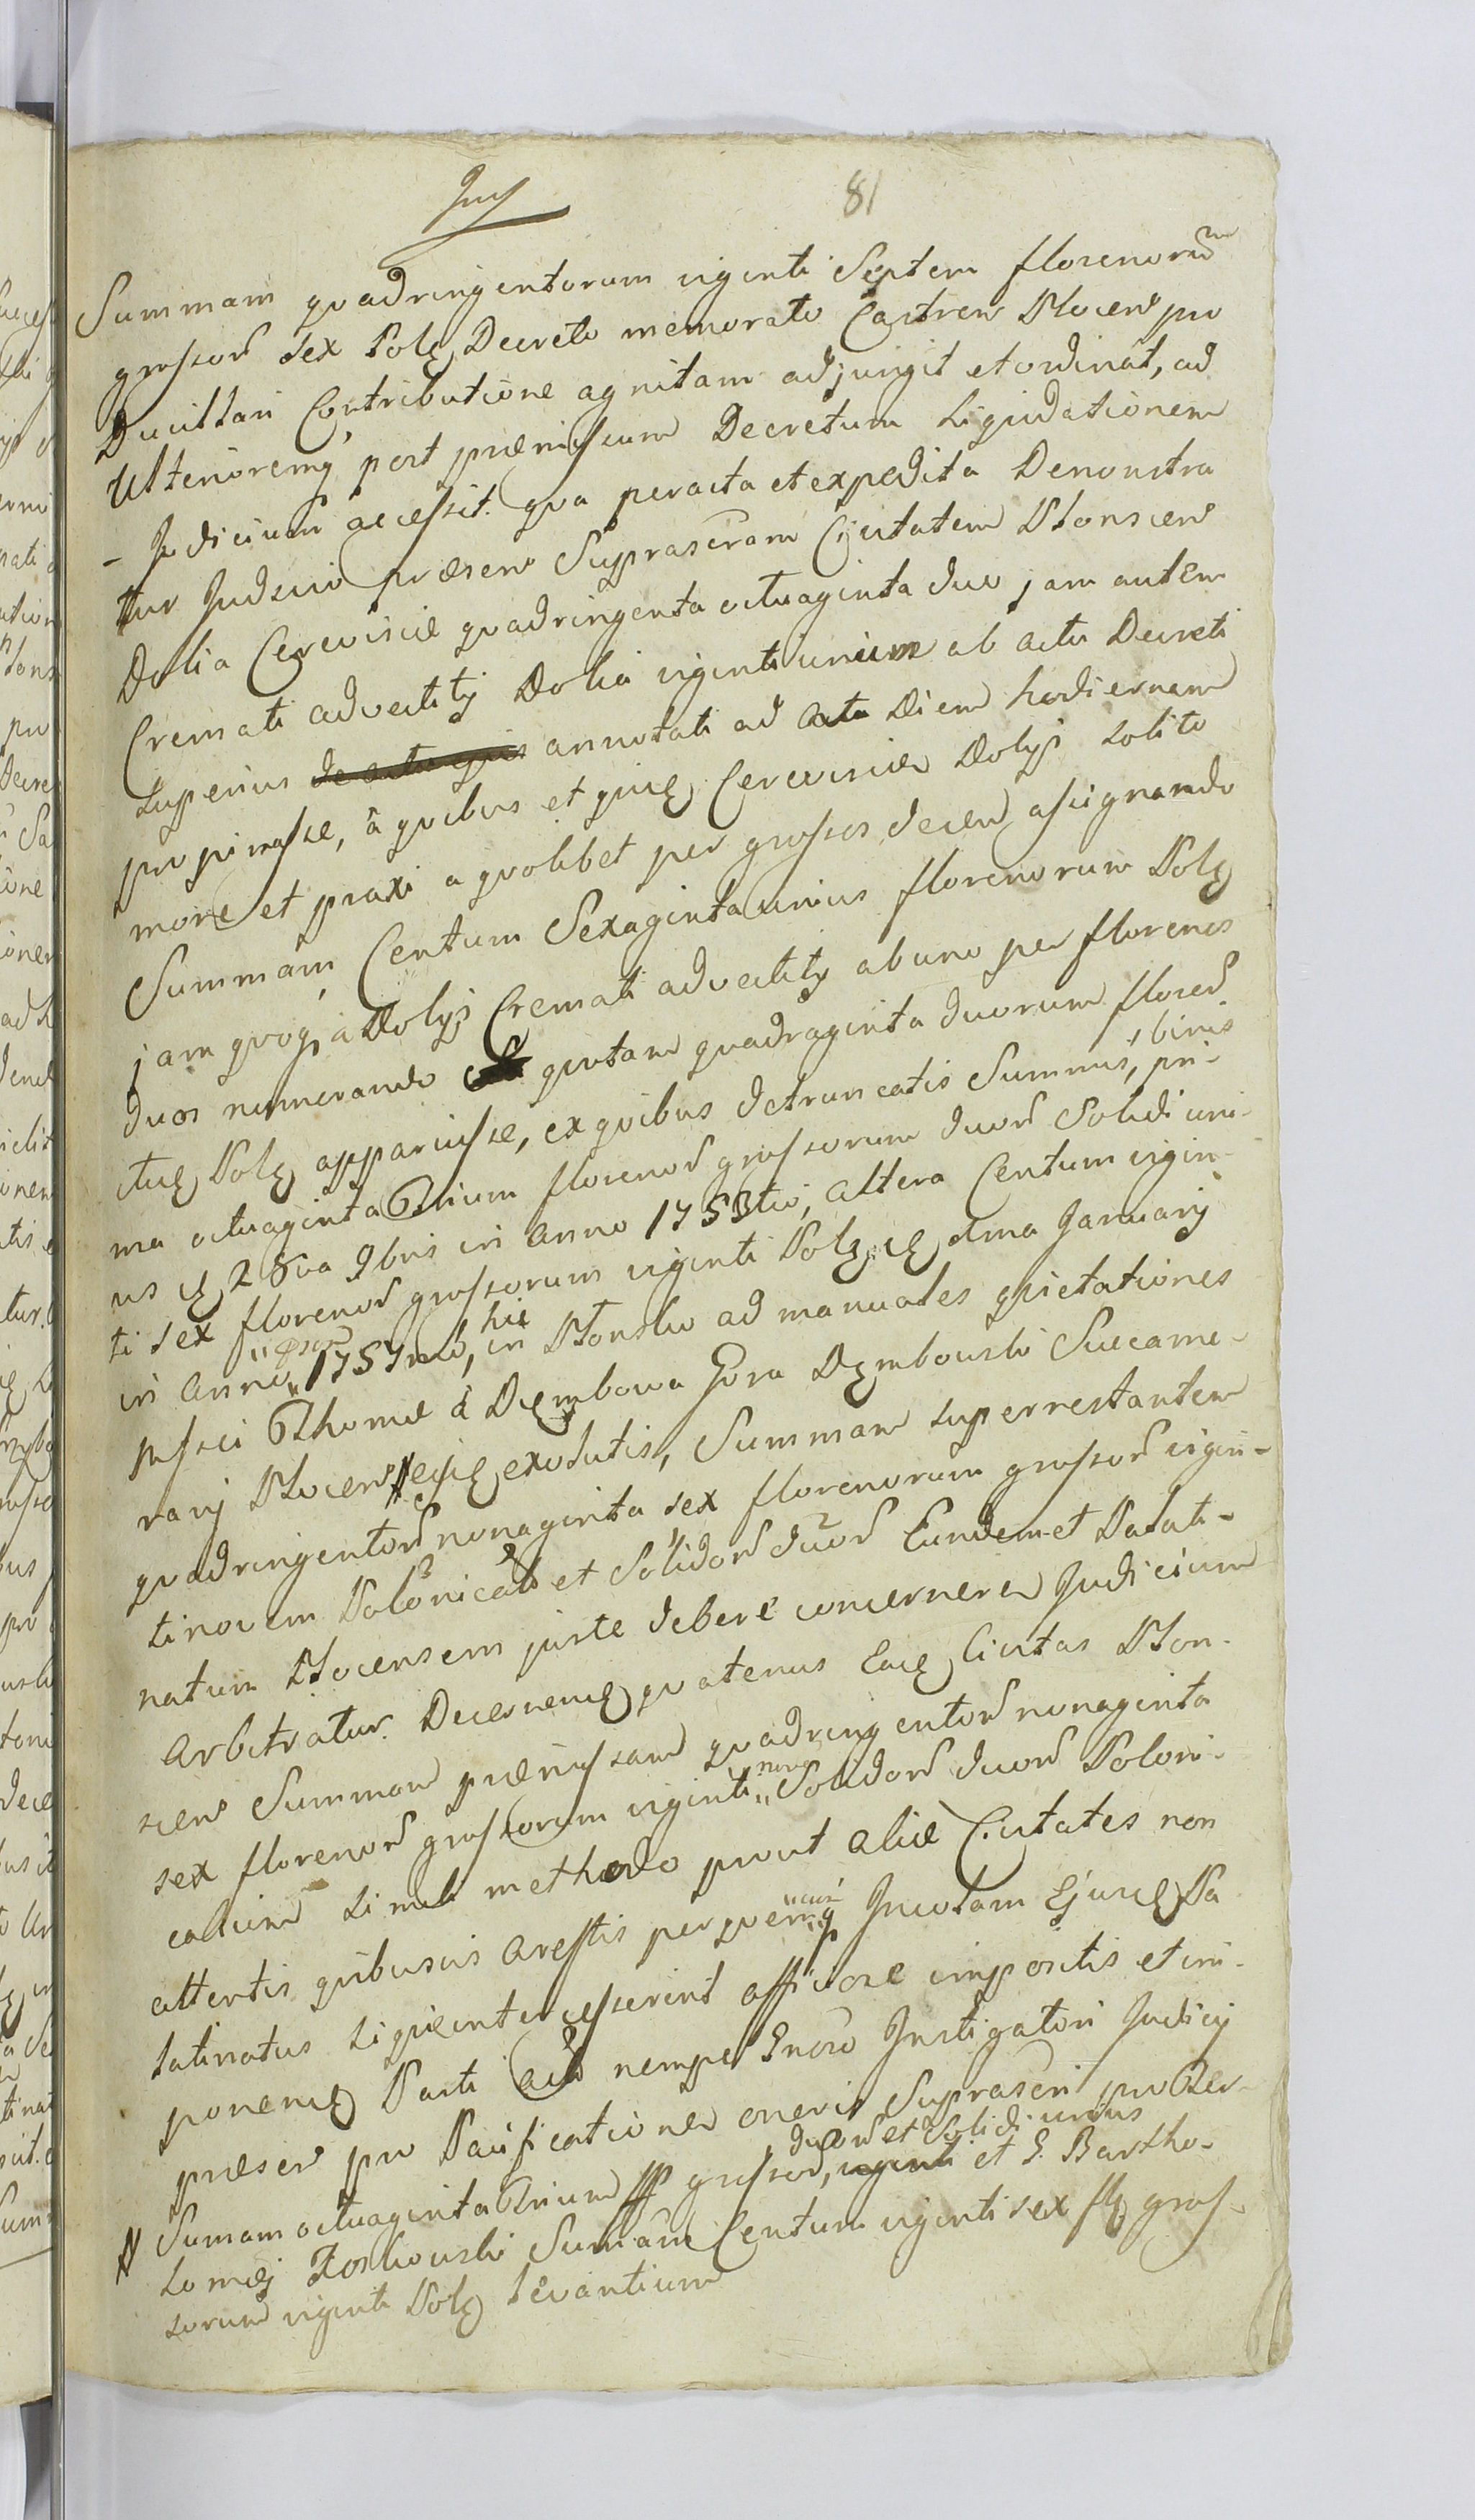 81
Summam quadringentorum viginti Septem florenorũ
grossor sex Polę Decreto memorato Castren Plocen pro
Ducillari Contributione agnitam adjungit et ordinat, ad
Ulterioremq post præmissum Decretum Liquidationem
- Judicium accessit. qva peracta et expedita Demonstra
tur Judicio præsen Suprascram Civitatem Plonscen
Dolia Cerevisiæ qvadringenta octuaginta duo jam autem
Cremati advectitij Dolia viginti unum ab actu Decreti
superius annotati ad Diem hodiernam
propinasse, à qvibus et qvię Cerevisiæ Dolijs solito
more et praxi a qvolibet per grossos decem assignando
Summam Centum Sexaginta unius florenorum Polę
jam qvoq a Dolijs Cremati advectitij ab uno per florenos
duos numerando qvotam qvadraginta duorum floren
ctuę Polę apparuisse, ex qvibus detruncatis Summis, binis pri-
ma octuaginta Trium florenor grossorum duor Solidi uni-
us ię 28va 9bris in Anno 1753tio, altera Centum vigin-
ti sex florenor grossorum viginti Polę ię dma January
in Anno 1757mo, hic in Plonsko ad manuales qvietationes
Thomæ à Dięmbowa Gora Dęmbowski Succame-
rarij Plocen exolutis, Summam superrestantem
qvadringentor nonaginta sex florenorum grossor vigin-
ti novem Polonicali et Solidor duor Eundemet Palati-
natum Plocensem juste debere concernere Judicium
Arbitratur. Decernendę qvatenus Eadę Civitas Plon-
scen Summam præmissam qvadringentor nonaginta
sex florenor grossorum viginti novem Solidor duor Poloni-
calium simili methodo prout aliæ Civitates non
attentis qvibusvis Arestis per qvemcunq Incolam Ejusdę Pa
latinatus siqvæ intercesserint officiose impositis et im-
ponendę Parti nempe Instigatori Judicij
præsen pro Pacificatione oneris Suprascri pro Ter-
# Sumam octuaginta Trium grossor, duor et Solidi unius et G. Bartho-
lomęj Zoskowski Sumam Centum viginti sex flę gros-
sorum viginti Polę levantium